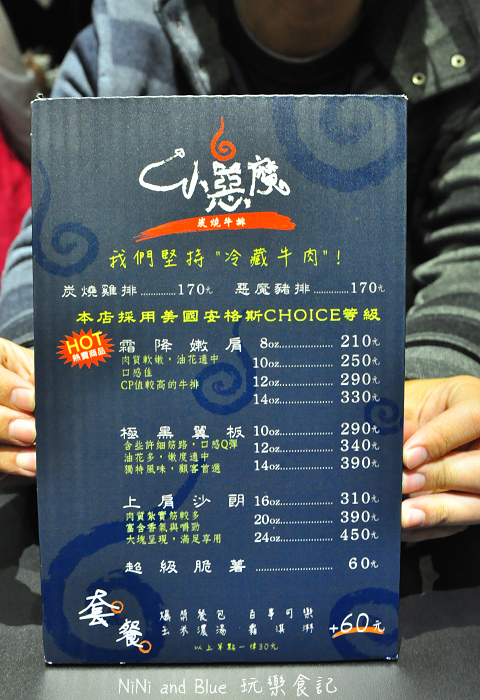 小惡魔
炭燒牛排
我們堅持"冷藏牛肉"!
炭燒雞排..............170元 惡魔豬排..............170元
本店採用美國安格斯CHOICE等級
HOT
熱賣商品
霜降嫩肩 8oz..................210元
肉質軟嫩，油花適中
口感佳
CP值較高的牛排
10oz..................250元
12oz..................290元
14oz..................330元
極黑翼板 10oz..................290元
含些許細筋路，口感Q彈
油花多，嫩度適中
獨特風味，顧客首選
12oz..................340元
14oz..................390元
上肩沙朗 16oz..................310元
肉質紮實筋較多
富含香氣與嚼勁
大塊呈現，滿足享用
20oz..................390元
24oz..................450元
超級脆薯..........................60元
套餐
爆漿餐包 百事可樂
玉米濃湯 霜淇淋
+60元
以上單點一律30元
NiNi and Blue 玩樂食記